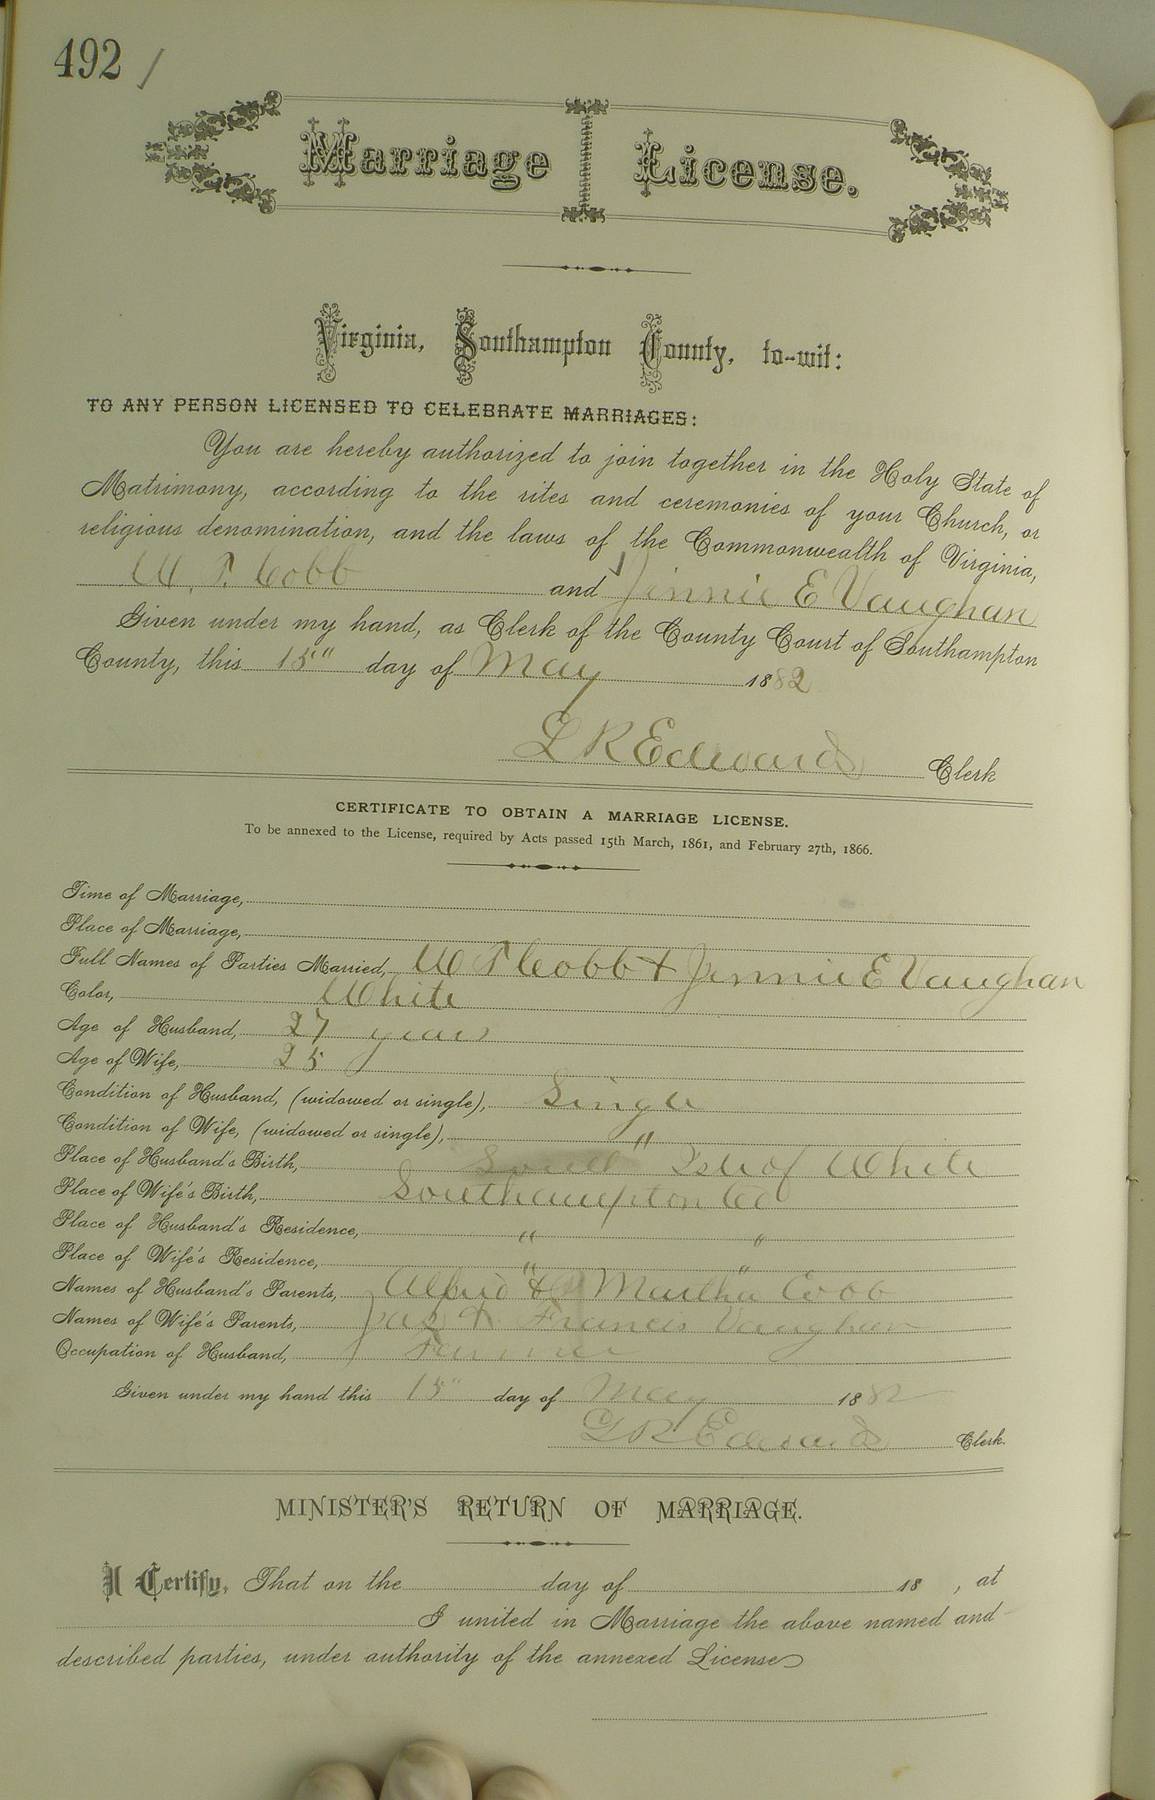 492 /
Marriage License.
Virginia, Southampton County, to-wit:
TO ANY PERSON LICENSED TO CELEBRATE MARRIAGES:
You are hereby authorized to join together in the Holy State of
Matrimony, according to the rites and ceremonies of your Church, or
religious denomination, and the laws of the Commonwealth of Virginia,
W. T. Cobb and Jennie E Vaughan
Given under my hand, as Clerk of the County Court of Southampton
County, this 15" day of May 1882
L R Edwards Clerk
CERTIFICATE TO OBTAIN A MARRIAGE LICENSE.
To be annexed to the License, required by Acts passed 15th March, 1861, and February 27th, 1866.
Time of Marriage,
Place of Marriage,
Full Names of Parties Married, W T Cobb & Jennie E Vaughan
Color, White
Age of Husband, 27 years
Age of Wife, 25
Condition of Husband, (widowed or single), Single
Condition of Wife, (widowed or single), "
Place of Husband's Birth, Isle of White
Place of Wife's Birth, Southampton Co
Place of Husband's Residence, " "
Place of Wife's Residence, " "
Names of Husband's Parents, Alfred & Martha Cobb
Names of Wife's Parents, Jas & Francis Vaughan
Occupation of Husband, Farmer
Given under my hand this 15" day of May 1882
L R Edwards Clerk.
MINISTER'S RETURN OF MARRIAGE.
I Certify, That on the day of 18 , at
I united in Marriage the above named and
described parties, under authority of the annexed License